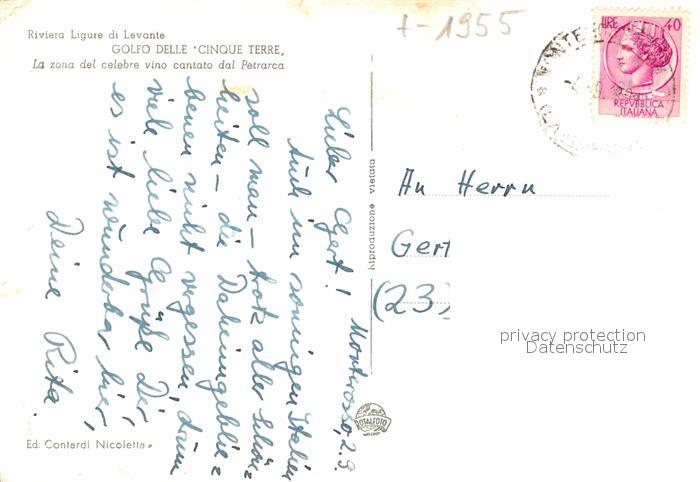 Riviera Ligure di Levante
GOLFO DELLE "CINQUE TERRE„
La zona del celebre vino cantato dal Petrarca
1955
LIRE 40
REPVBBLICA
ITALIANA
Monterosso, 2.9.
Lieber Gert!
Auch im sonnigen Italien
soll man – trotz aller Schön=
heiten – die Daheimgeblie=
benen nicht vergessen, drum
viele liebe Grüße Dir,
es ist wunderbar hier,
Deine Rita.
Riproduzione vietata
An Herrn
Gert
(23)
privacy protection
Datenschutz
Ed. Contardi Nicoletta